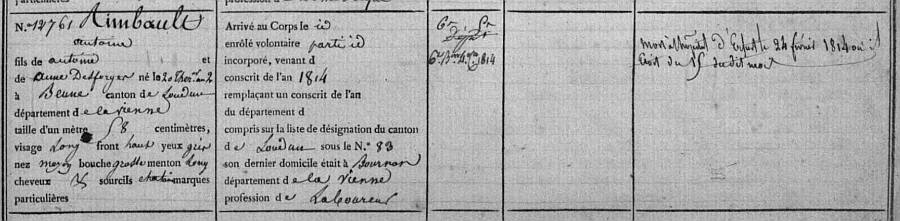 N.º 12761 Rimbault
antoine
fils de antoine et
de anne Desforges né le 20 Ber. an 2
à Beuxe canton de Loudun
département d e la vienne
taille d'un mètre 58 centimètres,
visage Long front haut yeux gris
nez moyen bouche grosse menton long
cheveux & sourcils chatain marques
particulières
Arrivé au Corps le id
enrôlé volontaire parti id
incorporé, venant d
conscrit de l'an 1814
remplaçant un conscrit de l'an
du département d
compris sur la liste de désignation du canton
d e Loudun sous le N.º 83
son dernier domicile était à Bournan
département d e la Vienne
profession d e Laboureur
1814
mort à l'hôpital d'Erfurt le 24 février 1814 où il
était du 15 dudit mois